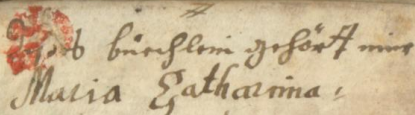 Das büechlein gehört mir
Maria Catharina: